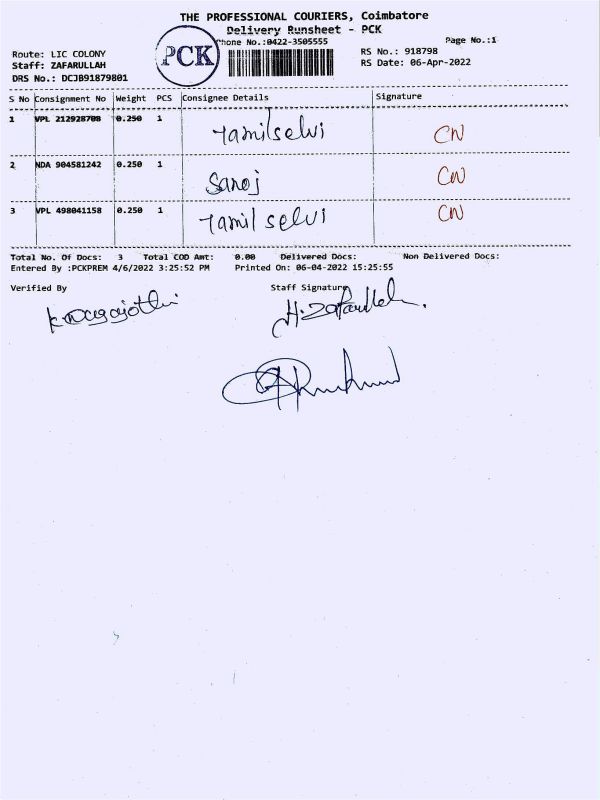 THE PROFESSIONAL COURIERS, Coimbatore
Delivery Runsheet - PCK
Phone No.:0422-3505555
Page No.:1
PCK
Route: LIC COLONY
RS No.: 918798
Staff: ZAFARULLAH
RS Date: 06-Apr-2022
DRS No.: DCJB91879801
S No Consignment No Weight PCS Consignee Details Signature
1 VPL 212928708 0.250 1 Tamilselvi CN
2 NDA 904581242 0.250 1 Sanoj CN
3 VPL 498041158 0.250 1 Tamil selvi CN
Total No. Of Docs: 3 Total COD Amt: 0.00 Delivered Docs: Non Delivered Docs:
Entered By :PCKPREM 4/6/2022 3:25:52 PM Printed On: 06-04-2022 15:25:55
Verified By Staff Signature